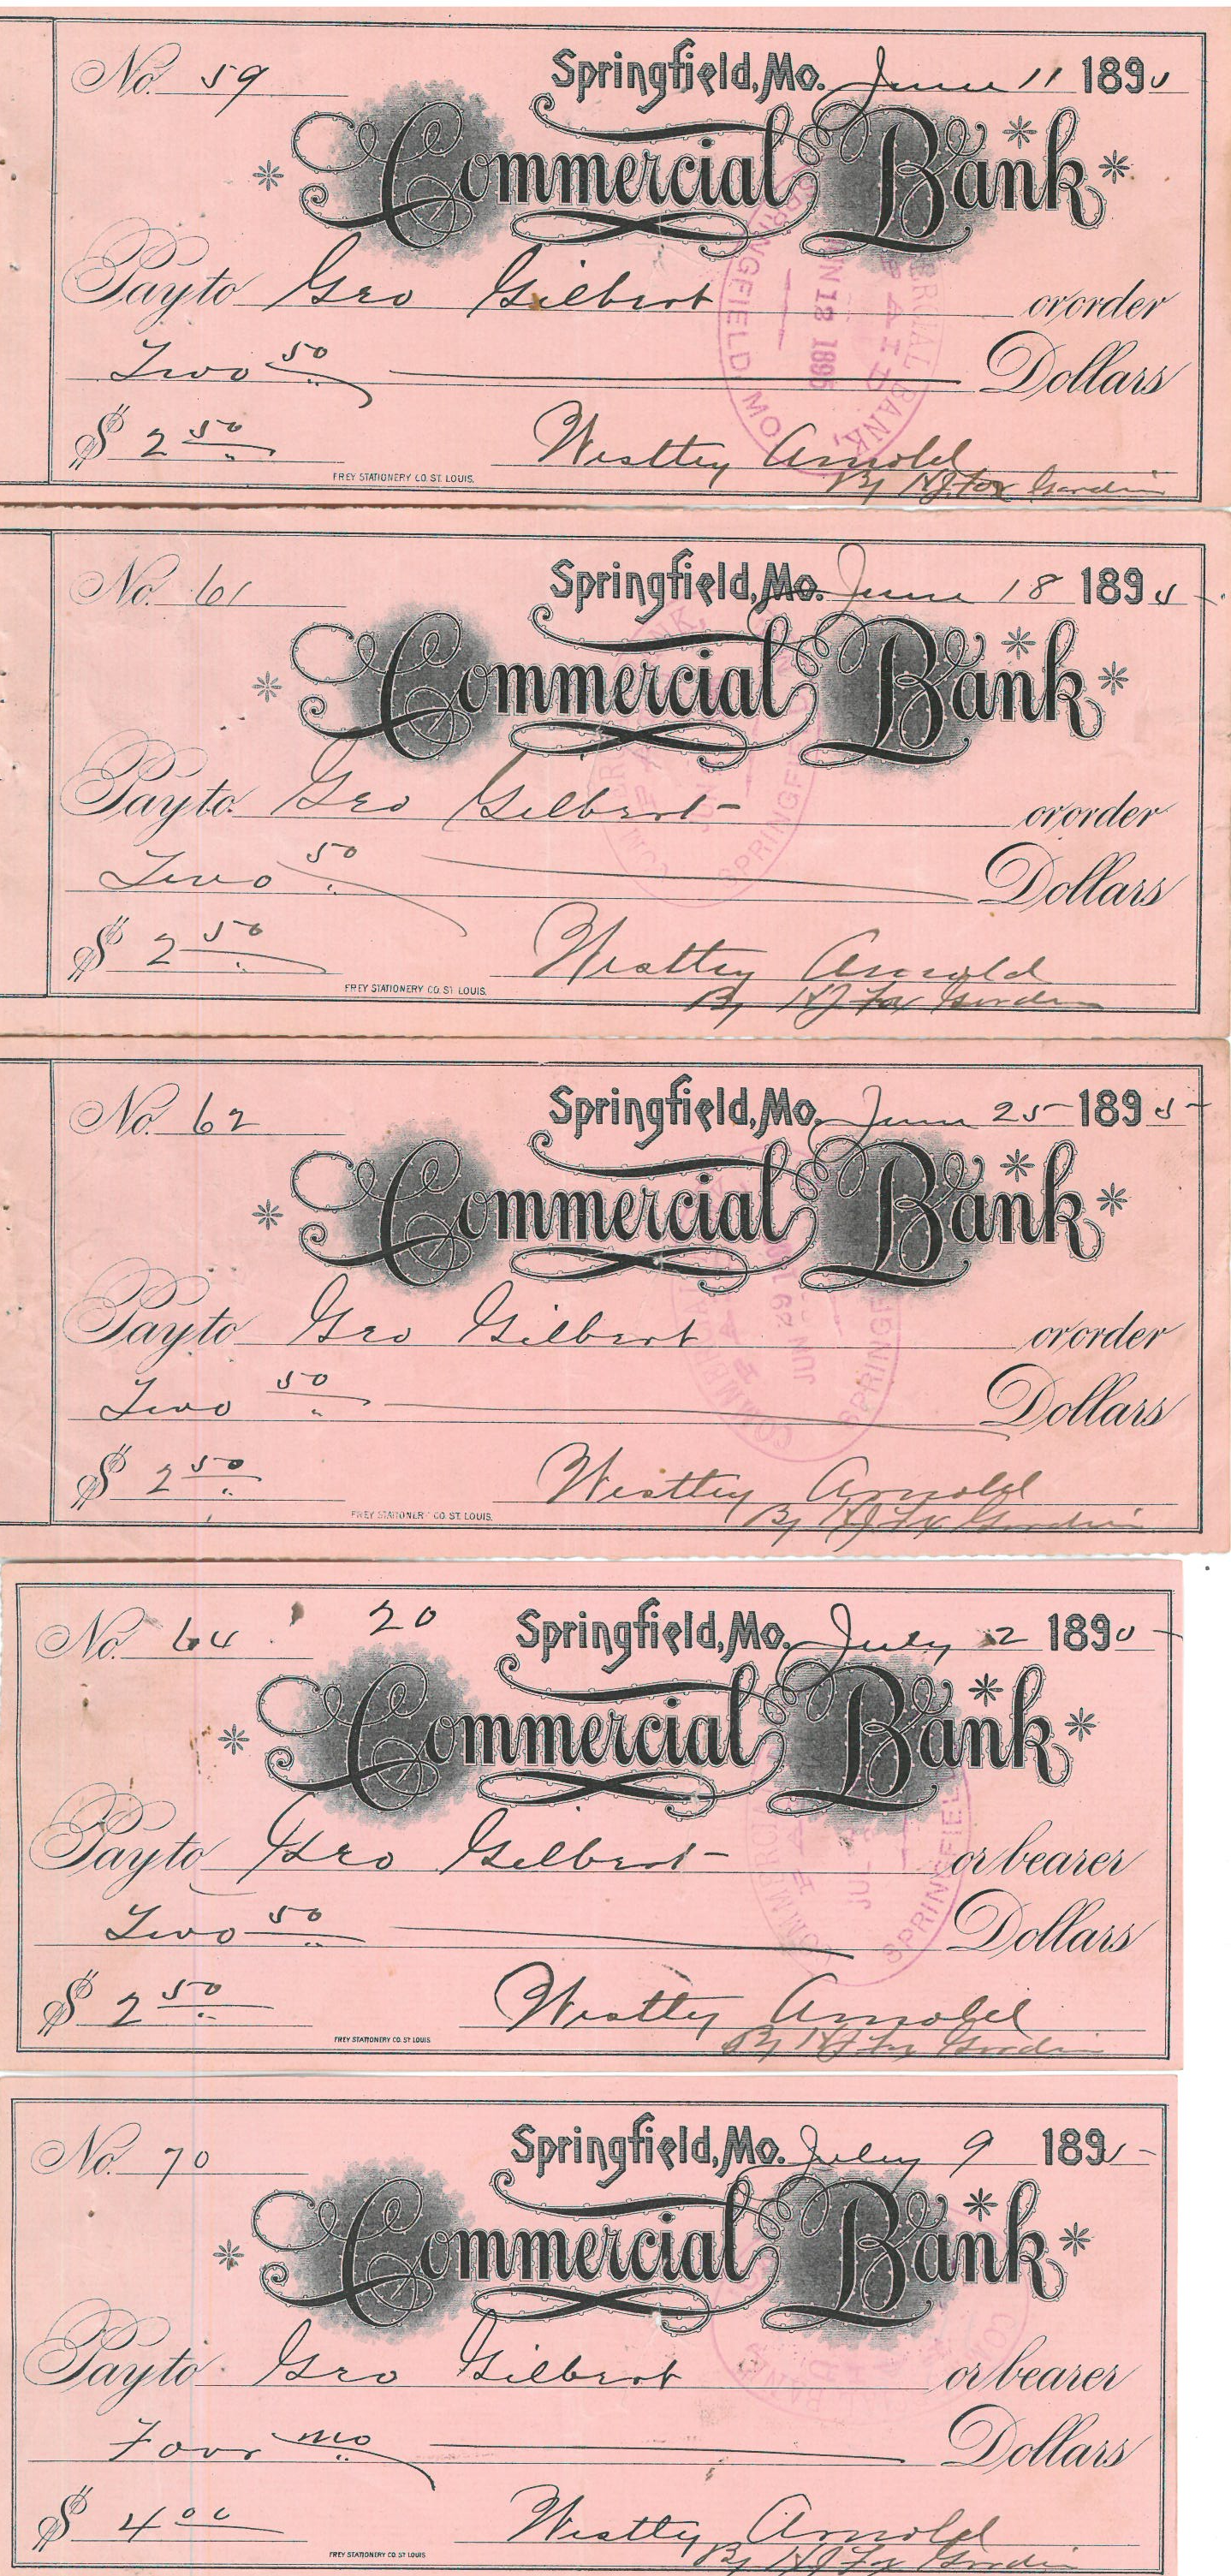 No. 59 Springfield, Mo. June 11 1895
Commercial Bank
Pay to Geo Gilbert or order
Two 50 Dollars
$ 2 50
Westley Arnold
By HJ Fox Gardin
FREY STATIONERY CO. ST. LOUIS.
COMMERCIAL BANK, PAID JUN 12 1895 SPRINGFIELD, MO.
No. 61 Springfield, Mo. June 18 1895
Commercial Bank
Pay to Geo Gilbert or order
Two 50 Dollars
$ 2 50
Westley Arnold
By HJ Fox
FREY STATIONERY CO. ST. LOUIS.
No. 62 Springfield, Mo. June 25 1895
Commercial Bank
Pay to Geo Gilbert or order
Two 50 Dollars
$ 2 50
Westley Arnold
By HJ Fox
FREY STATIONERY CO. ST. LOUIS.
JUN 29
No. 64 20 Springfield, Mo. July 2 1895
Commercial Bank
Pay to Geo Gilbert or bearer
Two 50 Dollars
$ 2 50
Westley Arnold
By HJ Fox
FREY STATIONERY CO. ST LOUIS
No. 70 Springfield, Mo. July 9 1895
Commercial Bank
Pay to Geo Gilbert or bearer
Four no Dollars
$ 4 00
Westley Arnold
By HJ Fox
FREY STATIONERY CO. ST LOUIS